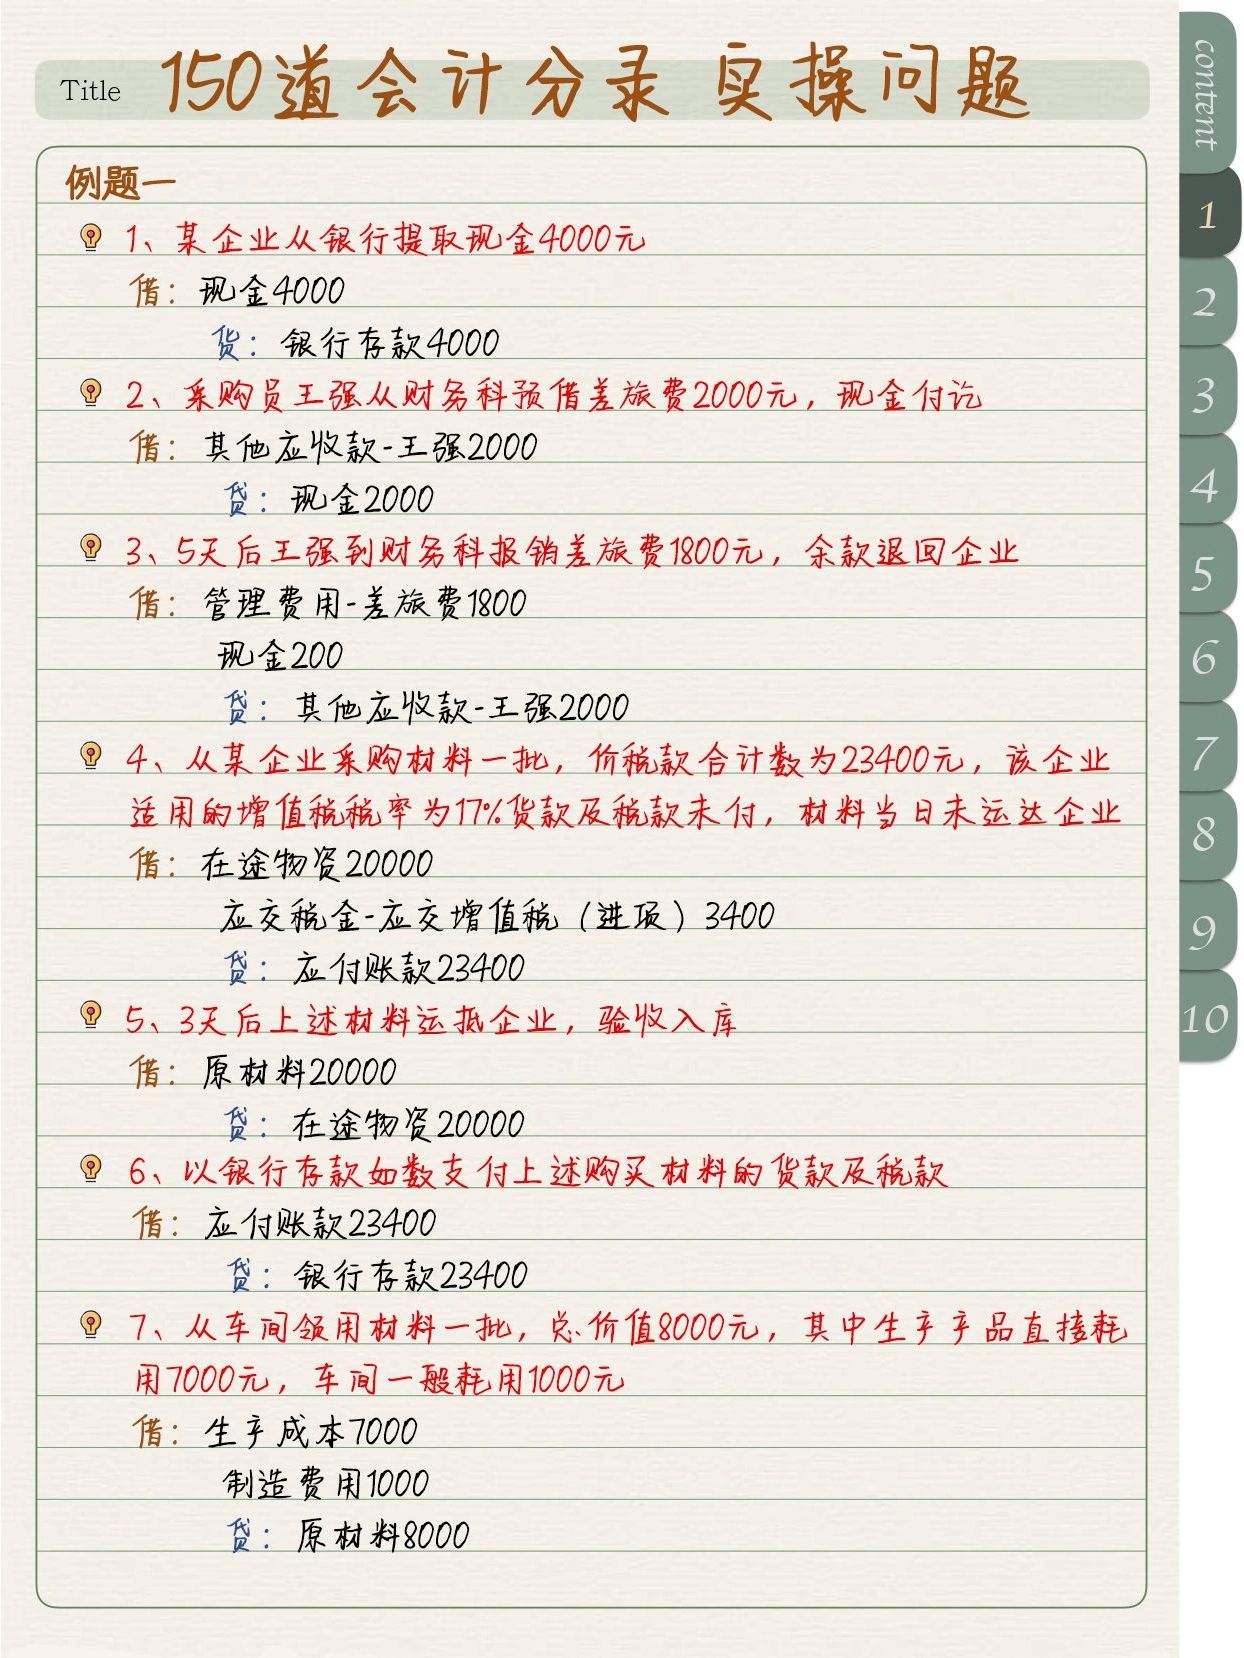 Title 150道会计分录 实操问题
例题一
1、某企业从银行提取现金4000元
借：现金4000
货：银行存款4000
2、采购员王强从财务科预借差旅费2000元，现金付讫
借：其他应收款-王强2000
贷：现金2000
3、5天后王强到财务科报销差旅费1800元，余款退回企业
借：管理费用-差旅费1800
现金200
贷：其他应收款-王强2000
4、从某企业采购材料一批，价税款合计数为23400元，该企业
适用的增值税税率为17%货款及税款未付，材料当日未运达企业
借：在途物资20000
应交税金-应交增值税（进项）3400
贷：应付账款23400
5、3天后上述材料运抵企业，验收入库
借：原材料20000
贷：在途物资20000
6、以银行存款如数支付上述购买材料的货款及税款
借：应付账款23400
贷：银行存款23400
7、从车间领用材料一批，总价值8000元，其中生产产品直接耗
用7000元，车间一般耗用1000元
借：生产成本7000
制造费用1000
贷：原材料8000
content
1
2
3
4
5
6
7
8
9
10